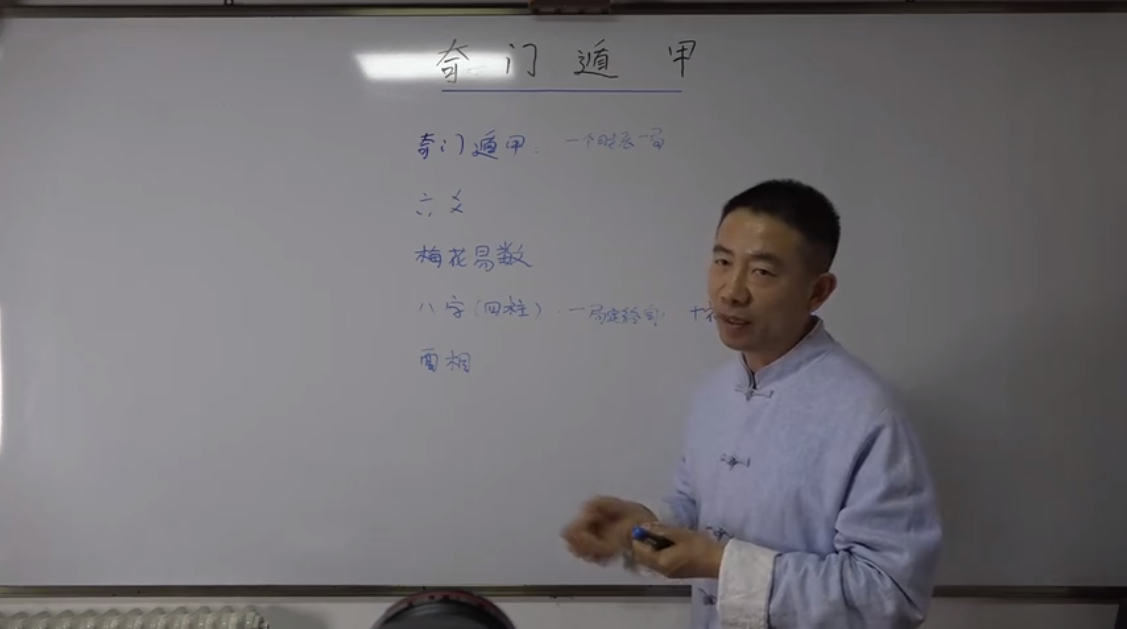 奇门遁甲
奇门遁甲：一个时辰一局
六爻
梅花易数
八字（四柱）：一局定终身
面相